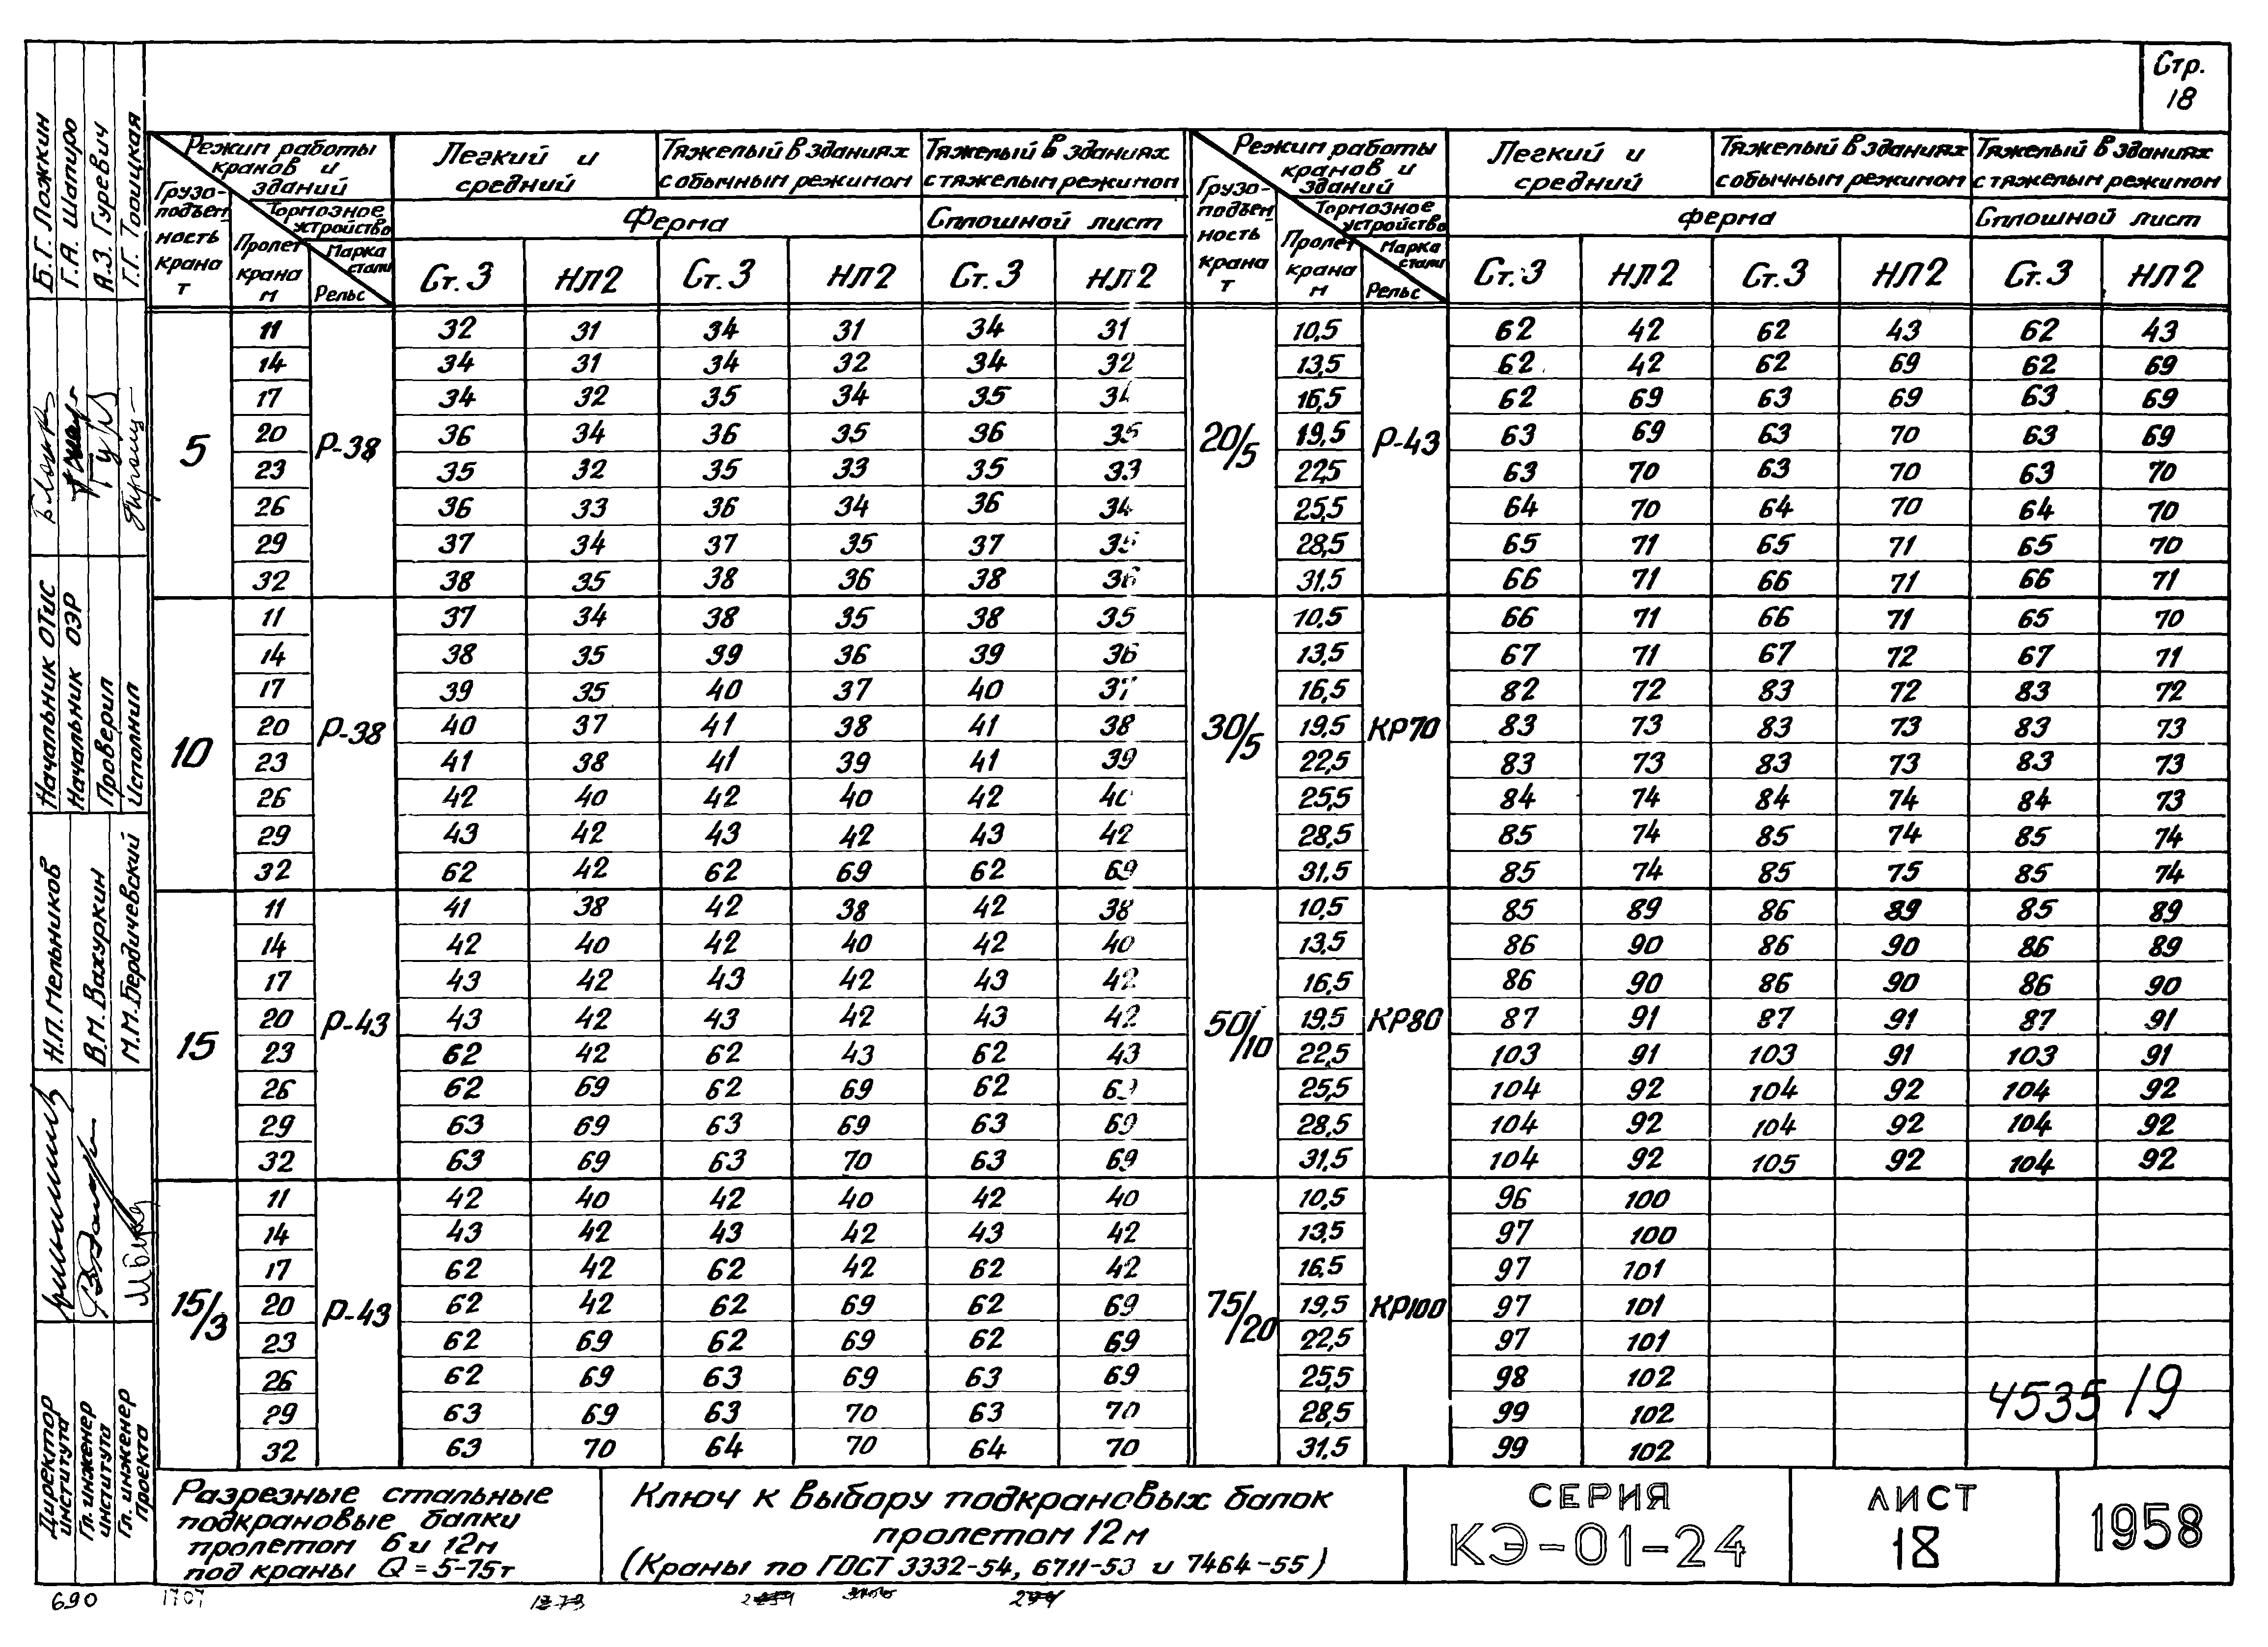 Стр.
18
Режим работы кранов и зданий
Грузоподъемность крана т
Пролет крана м
Тормозное устройство
Марка стали
Рельс
Легкий и средний
Тяжелый в зданиях с обычным режимом
Тяжелый в зданиях с тяжелым режимом
Ферма
Сплошной лист
Ст.3 НЛ2 Ст.3 НЛ2 Ст.3 НЛ2
5 Р-38
11 32 31 34 31 34 31
14 34 31 34 32 34 32
17 34 32 35 34 35 34
20 36 34 36 35 36 35
23 35 32 35 33 35 33
26 36 33 36 34 36 34
29 37 34 37 35 37 35
32 38 35 38 36 38 36
10 Р-38
11 37 34 38 35 38 35
14 38 35 39 36 39 36
17 39 35 40 37 40 37
20 40 37 41 38 41 38
23 41 38 41 39 41 39
26 42 40 42 40 42 40
29 43 42 43 42 43 42
32 62 42 62 69 62 69
15 Р-43
11 41 38 42 38 42 38
14 42 40 42 40 42 40
17 43 42 43 42 43 42
20 43 42 43 42 43 42
23 62 42 62 43 62 43
26 62 69 62 69 62 69
29 63 69 63 69 63 69
32 63 69 63 70 63 69
15/3 Р-43
11 42 40 42 40 42 40
14 43 42 43 42 43 42
17 62 42 62 42 62 42
20 62 42 62 69 62 69
23 62 69 62 69 62 69
26 62 69 63 69 63 69
29 63 69 63 70 63 70
32 63 70 64 70 64 70
Режим работы кранов и зданий
Грузоподъемность крана т
Пролет крана м
Тормозное устройство
Марка стали
Рельс
Легкий и средний
Тяжелый в зданиях с обычным режимом
Тяжелый в зданиях с тяжелым режимом
Ферма
Сплошной лист
Ст.3 НЛ2 Ст.3 НЛ2 Ст.3 НЛ2
20/5 Р-43
10,5 62 42 62 43 62 43
13,5 62 42 62 69 62 69
16,5 62 69 63 69 63 69
19,5 63 69 63 70 63 69
22,5 63 70 63 70 63 70
25,5 64 70 64 70 64 70
28,5 65 71 65 71 65 70
31,5 66 71 66 71 66 71
30/5 КР70
10,5 66 71 66 71 65 70
13,5 67 71 67 72 67 71
16,5 82 72 83 72 83 72
19,5 83 73 83 73 83 73
22,5 83 73 83 73 83 73
25,5 84 74 84 74 84 73
28,5 85 74 85 74 85 74
31,5 85 74 85 75 85 74
50/10 КР80
10,5 85 89 86 89 85 89
13,5 86 90 86 90 86 89
16,5 86 90 86 90 86 90
19,5 87 91 87 91 87 91
22,5 103 91 103 91 103 91
25,5 104 92 104 92 104 92
28,5 104 92 104 92 104 92
31,5 104 92 105 92 104 92
75/20 КР100
10,5 96 100
13,5 97 100
16,5 97 101
19,5 97 101
22,5 97 101
25,5 98 102
28,5 99 102
31,5 99 102
4535 19
Разрезные стальные
подкрановые балки
пролетом 6 и 12м
под краны Q = 5-75т
Ключ к выбору подкрановых балок
пролетом 12м
(Краны по ГОСТ 3332-54, 6711-53 и 7464-55)
СЕРИЯ
КЭ-01-24
ЛИСТ
18
1958
Начальник ОТиС Б.Г. Ложкин
Начальник ОЭР Г.А. Шапиро
Проверил А.З. Гуревич
Исполнил Г.Г. Троицкая
Директор института Н.П. Мельников
Гл. инженер института В.М. Вахуркин
Гл. инженер проекта М.М. Бердичевский
690
1707